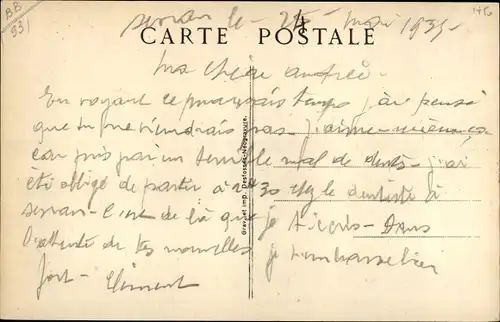 BB
931
le 25 mai 1935
CARTE POSTALE
Ma chère andrée.
En voyant ce mauvais temps j'ai pensé
que tu ne viendrais pas. j'aime
car pris par un terrible mal de dents j'ai
été obligé de partir à chez le dentiste à
C'est de là que je t'écris. Dans
l'attente de tes nouvelles je t'embrasse bien
fort. Clément
Gravé et imp. Desfossés-Néogravure.